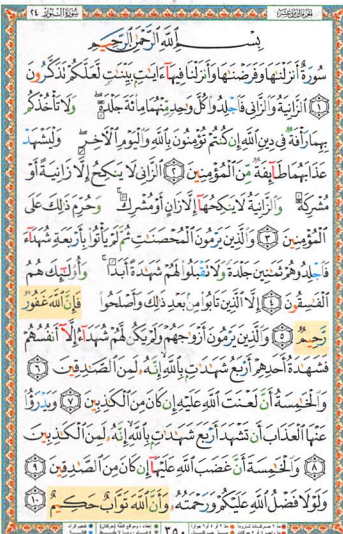 سُورَةُ النُّورِ ٢٤
بِسْمِ اللَّهِ الرَّحْمَٰنِ الرَّحِيمِ
سُورَةٌ أَنزَلْنَٰهَا وَفَرَضْنَٰهَا وَأَنزَلْنَا فِيهَآ ءَايَٰتٍۭ بَيِّنَٰتٍ لَّعَلَّكُمْ تَذَكَّرُونَ
١ ٱلزَّانِيَةُ وَٱلزَّانِى فَٱجْلِدُوا۟ كُلَّ وَٰحِدٍ مِّنْهُمَا مِا۟ئَةَ جَلْدَةٍ ۖ وَلَا تَأْخُذْكُم
بِهِمَا رَأْفَةٌ فِى دِينِ ٱللَّهِ إِن كُنتُمْ تُؤْمِنُونَ بِٱللَّهِ وَٱلْيَوْمِ ٱلْءَاخِرِ ۖ وَلْيَشْهَدْ
عَذَابَهُمَا طَآئِفَةٌ مِّنَ ٱلْمُؤْمِنِينَ ٢ ٱلزَّانِى لَا يَنكِحُ إِلَّا زَانِيَةً أَوْ
مُشْرِكَةً وَٱلزَّانِيَةُ لَا يَنكِحُهَآ إِلَّا زَانٍ أَوْ مُشْرِكٌ ۚ وَحُرِّمَ ذَٰلِكَ عَلَى
ٱلْمُؤْمِنِينَ ٣ وَٱلَّذِينَ يَرْمُونَ ٱلْمُحْصَنَٰتِ ثُمَّ لَمْ يَأْتُوا۟ بِأَرْبَعَةِ شُهَدَآءَ
فَٱجْلِدُوهُمْ ثَمَٰنِينَ جَلْدَةً وَلَا تَقْبَلُوا۟ لَهُمْ شَهَٰدَةً أَبَدًا ۚ وَأُو۟لَٰٓئِكَ هُمُ
ٱلْفَٰسِقُونَ ٤ إِلَّا ٱلَّذِينَ تَابُوا۟ مِنۢ بَعْدِ ذَٰلِكَ وَأَصْلَحُوا۟ فَإِنَّ ٱللَّهَ غَفُورٌ
رَّحِيمٌ ٥ وَٱلَّذِينَ يَرْمُونَ أَزْوَٰجَهُمْ وَلَمْ يَكُن لَّهُمْ شُهَدَآءُ إِلَّآ أَنفُسُهُمْ
فَشَهَٰدَةُ أَحَدِهِمْ أَرْبَعُ شَهَٰدَٰتٍۭ بِٱللَّهِ إِنَّهُۥ لَمِنَ ٱلصَّٰدِقِينَ ٦
وَٱلْخَٰمِسَةُ أَنَّ لَعْنَتَ ٱللَّهِ عَلَيْهِ إِن كَانَ مِنَ ٱلْكَٰذِبِينَ ٧ وَيَدْرَؤُا۟
عَنْهَا ٱلْعَذَابَ أَن تَشْهَدَ أَرْبَعَ شَهَٰدَٰتٍۭ بِٱللَّهِ إِنَّهُۥ لَمِنَ ٱلْكَٰذِبِينَ
٨ وَٱلْخَٰمِسَةَ أَنَّ غَضَبَ ٱللَّهِ عَلَيْهَآ إِن كَانَ مِنَ ٱلصَّٰدِقِينَ ٩
وَلَوْلَا فَضْلُ ٱللَّهِ عَلَيْكُمْ وَرَحْمَتُهُۥ وَأَنَّ ٱللَّهَ تَوَّابٌ حَكِيمٌ ١٠
٣٥٠